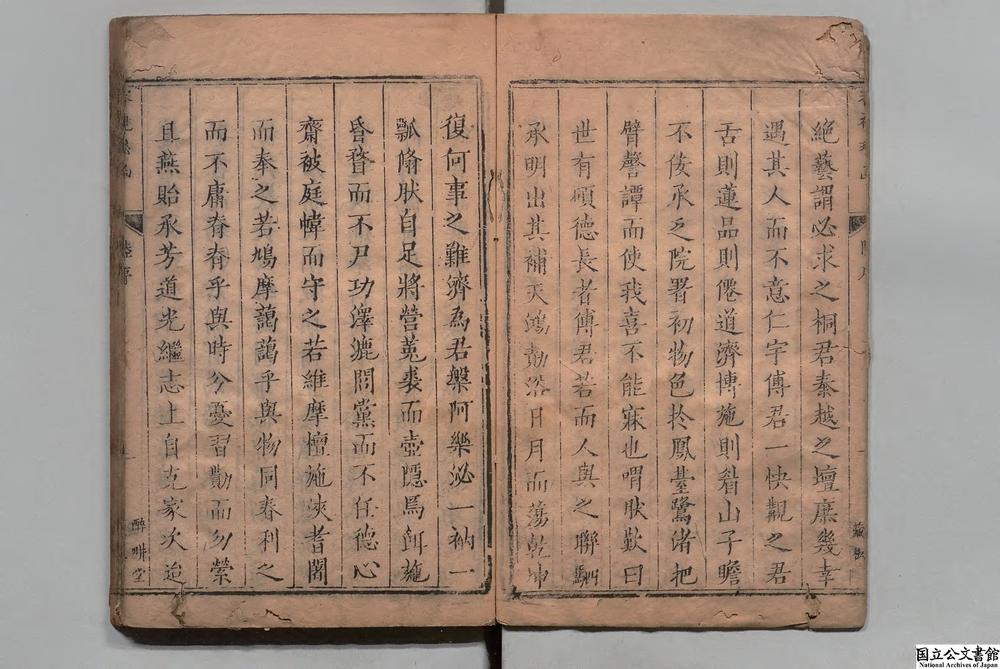 絶藝謂必求之桐君秦越之壇庶幾幸
遇其人而不意仁宇傅君一快覯之君
舌則蓮品則僊道濟博施則眉山子瞻
不佞承乏院署初物色於鳳臺鷺渚把
臂警譚而使我喜不能寐也喟肰歎曰
世有碩德長者傅君若而人與之聯駟
承明出其補天鴻勛浴日月而蕩乾坤
復何事之難濟為君槃阿樂泌一衲一
瓢翛肰自足將營菟裘而壺隱焉餌施
昏瞀而不尸功澤漉閭黨而不任德心
齋被庭幃而守之若維摩檀施浹耆闍
而奉之若鳩摩藹藹乎與物同春利之
而不庸眷眷乎與時兮憂習勩而勿縈
且燕貽承芳道光繼志上自克家次迨
醉畊堂
藏板
国立公文書館
National Archives of Japan